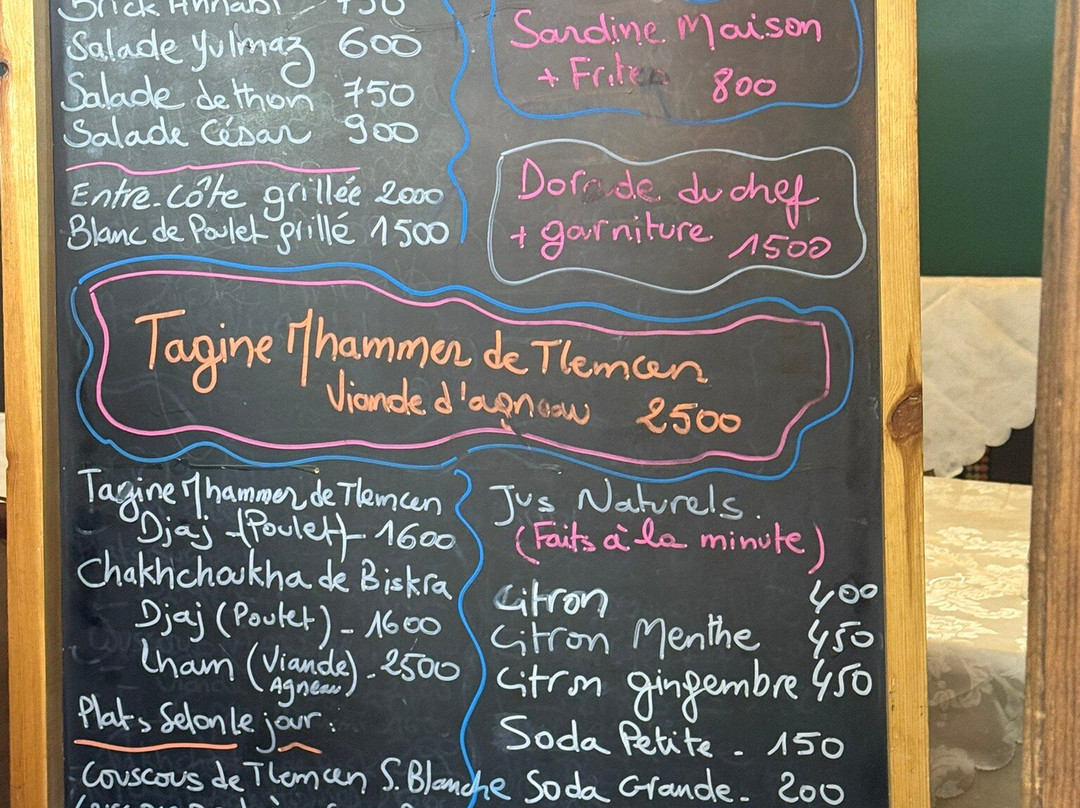 Brick Annabi 750
Salade Yulmaz 600
Salade de thon 750
Salade César 900
Entre-Côte grillée 2000
Blanc de Poulet grillé 1500
Sardine Maison
+ Frites 800
Dorade du chef
+ garniture 1500
Tagine Mhammer de Tlemcen
Viande d'agneau 2500
Tagine Mhammer de Tlemcen
Djaj (Poulet) 1600
Chakhchoukha de Biskra
Djaj (Poulet) - 1600
Lham (Viande) - 2500
Agneau
Plats Selon le jour :
Couscous de Tlemcen S. Blanche
Jus Naturels.
(Faits à la minute)
Citron 400
Citron Menthe 450
Citron gingembre 450
Soda Petite - 150
Soda Grande - 200